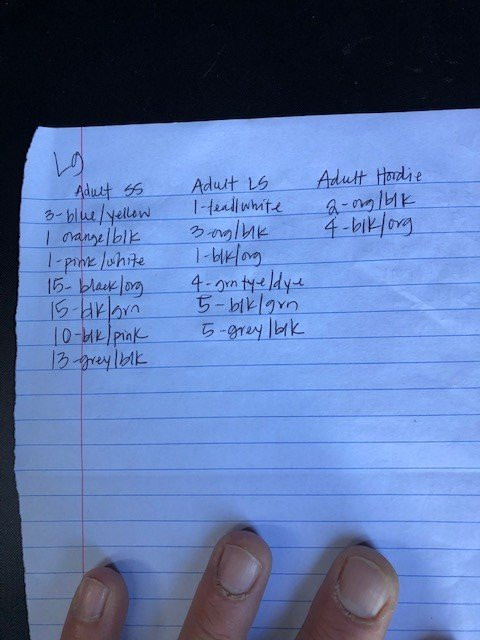 Lg
Adult SS
3-blue/yellow
1 orange/blk
1-pink/white
15-black/org
15-blk/grn
10-blk/pink
13-grey/blk
Adult LS
1-teal/white
3-org/blk
1-blk/org
4-grn tye/dye
5-blk/grn
5-grey/blk
Adult Hoodie
2-org/blk
4-blk/org